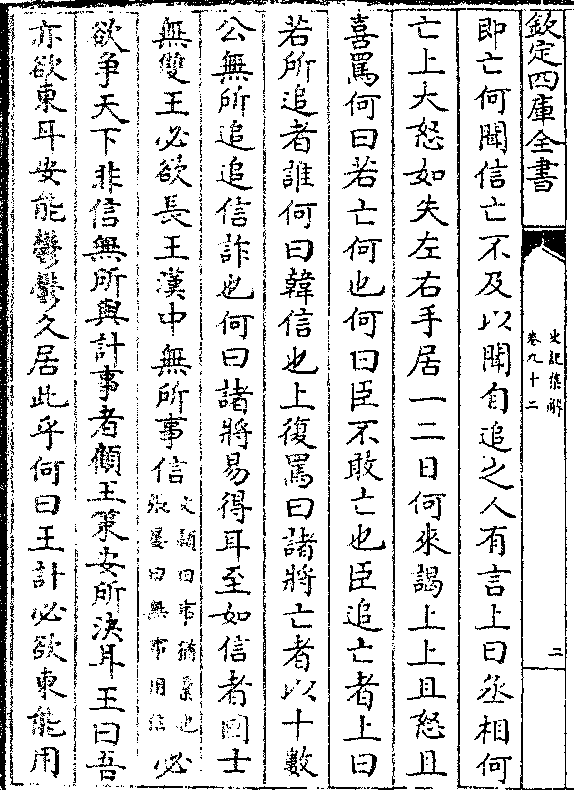 欽定四庫全書
史記集解
卷九十二
二
即亡何聞信亡不及以聞自追之人有言上曰丞相何
亡上大怒如失左右手居一二日何來謁上上且怒且
喜罵何曰若亡何也何曰臣不敢亡也臣追亡者上曰
若所追者誰何曰韓信也上復罵曰諸將亡者以十數
公無所追追信詐也何曰諸將易得耳至如信者國士
無雙王必欲長王漢中無所事信文穎曰事猶業也張晏曰無事用信必
欲爭天下非信無所與計事者顧王策安所決耳王曰吾
亦欲東耳安能鬱鬱久居此乎何曰王計必欲東能用